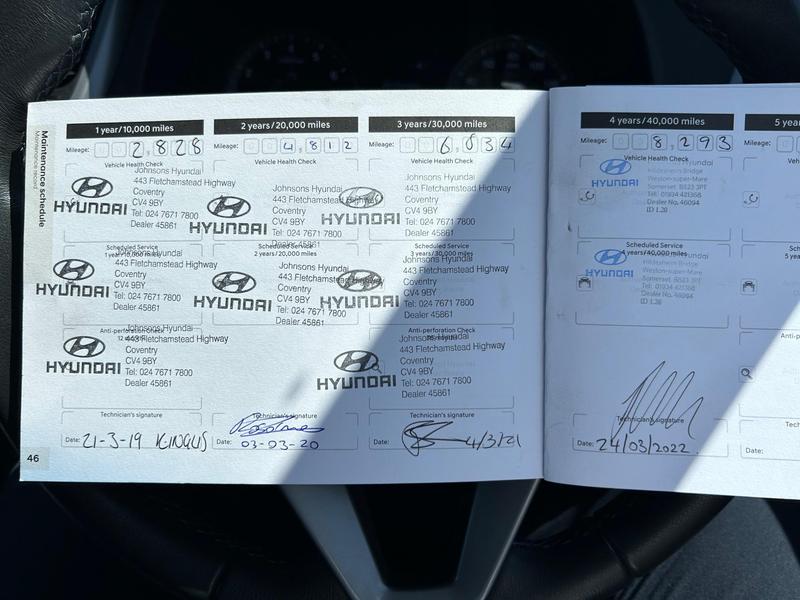 Maintenance schedule
Maintenance record
1 year/10,000 miles
Mileage: 2,828
Vehicle Health Check
HYUNDAI
Johnsons Hyundai
443 Fletchamstead Highway
Coventry
CV4 9BY
Tel: 024 7671 7800
Dealer 45861
Scheduled Service
1 year/10,000 miles
HYUNDAI
Johnsons Hyundai
443 Fletchamstead Highway
Coventry
CV4 9BY
Tel: 024 7671 7800
Dealer 45861
Anti-perforation Check
HYUNDAI
Johnsons Hyundai
443 Fletchamstead Highway
Coventry
CV4 9BY
Tel: 024 7671 7800
Dealer 45861
Date: 21-3-19
46
2 years/20,000 miles
Mileage: 4,812
Vehicle Health Check
HYUNDAI
Johnsons Hyundai
443 Fletchamstead Highway
Coventry
CV4 9BY
Tel: 024 7671 7800
Dealer 45861
Scheduled Service
2 years/20,000 miles
HYUNDAI
Johnsons Hyundai
443 Fletchamstead Highway
Coventry
CV4 9BY
Tel: 024 7671 7800
Dealer 45861
Technician's signature
Date: 03-03-20
3 years/30,000 miles
Mileage: 6,034
Vehicle Health Check
HYUNDAI
Johnsons Hyundai
443 Fletchamstead Highway
Coventry
CV4 9BY
Tel: 024 7671 7800
Dealer 45861
Scheduled Service
3 years/30,000 miles
HYUNDAI
Johnsons Hyundai
443 Fletchamstead Highway
Coventry
CV4 9BY
Tel: 024 7671 7800
Dealer 45861
Anti-perforation Check
HYUNDAI
Johnsons Hyundai
443 Fletchamstead Highway
Coventry
CV4 9BY
Tel: 024 7671 7800
Dealer 45861
Technician's signature
Date: 4/3/21
4 years/40,000 miles
Mileage: 8,293
Vehicle Health Check
HYUNDAI
Hyundai
Hildersheim Bridge
Weston-super-Mare
Somerset BS23 3PT
Tel: 01934 421368
Dealer No. 46094
ID 1.28
Scheduled Service
4 years/40,000 miles
HYUNDAI
Hyundai
Hildersheim Bridge
Weston-super-Mare
Somerset BS23 3PT
Tel: 01934 421368
Dealer No. 46094
ID 1.28
Technician's signature
Date: 24/03/2022
5 year
Mileage:
Date: